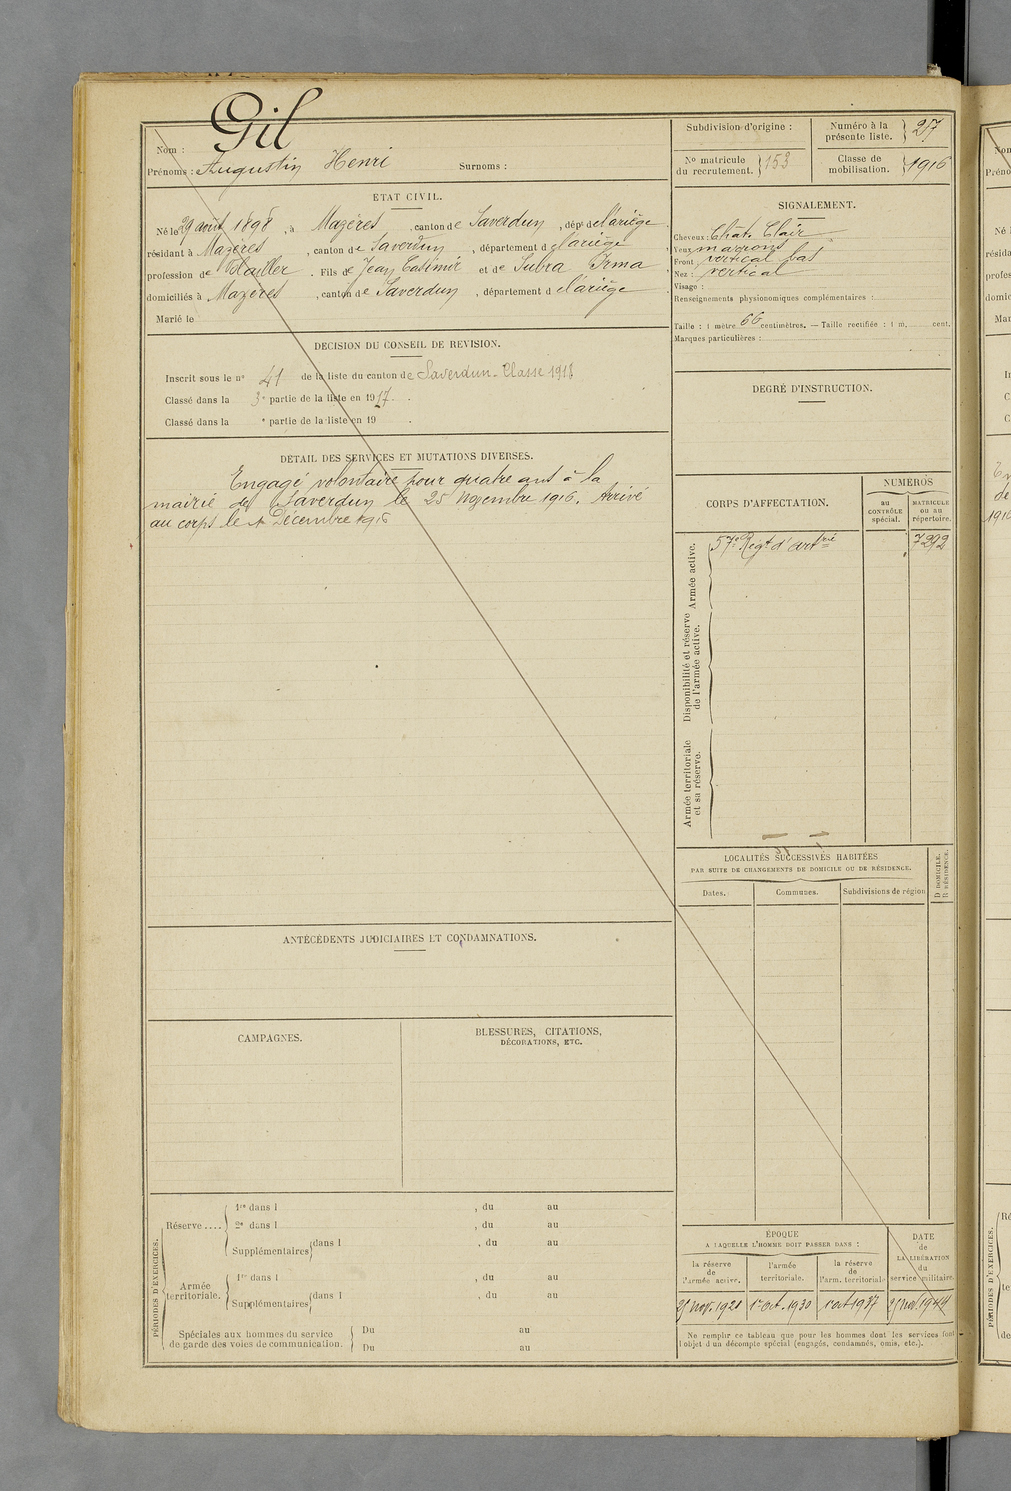 Nom : Gil
Prénoms : Augustin Henri Surnoms :
ÉTAT CIVIL.
Né le 29 août 1898, à Mazères, canton de Saverdun, dépt de l'ariège
résidant à Mazères, canton de Saverdun, département d l'ariège
profession de . Fils de Jean Casimir et de Subra Irma
domiciliés à Mazères, canton de Saverdun, département d l'ariège
Marié le
DÉCISION DU CONSEIL DE REVISION.
Inscrit sous le n° 41 de la liste du canton de Saverdun - Classe 1918
Classé dans la 3e partie de la liste en 1917.
Classé dans la e partie de la liste en 19 .
DÉTAIL DES SERVICES ET MUTATIONS DIVERSES.
Engagé volontaire pour quatre ans à la
mairie de Saverdun le 25 Novembre 1916. Arrivé
au corps le Décembre 1916
ANTÉCÉDENTS JUDICIAIRES ET CONDAMNATIONS.
CAMPAGNES.
BLESSURES, CITATIONS,
DÉCORATIONS, ETC.
PÉRIODES D'EXERCICES.
Réserve ....
1re dans l , du au
2e dans l , du au
Supplémentaires dans l , du au
Armée
territoriale.
1re dans l , du au
Supplémentaires dans l , du au
Spéciales aux hommes du service
de garde des voies de communication.
Du au
Du au
Subdivision d'origine :
Numéro à la
présente liste. 217
N° matricule
du recrutement. 153
Classe de
mobilisation. 1916
SIGNALEMENT.
Cheveux : Chât. Clair
Yeux marrons
Front : vertical bas
Nez : vertical
Visage :
Renseignements physionomiques complémentaires :
Taille : 1 mètre 66 centimètres. — Taille rectifiée : 1 m. cent.
Marques particulières :
DEGRÉ D'INSTRUCTION.
CORPS D'AFFECTATION.
NUMÉROS
au
CONTRÔLE
spécial.
MATRICULE
ou au
répertoire.
Armée active.
57e Régt d'Artrie 7292
Disponibilité et réserve
de l'armée active.
Armée territoriale
et sa réserve.
LOCALITÉS SUCCESSIVES HABITÉES
PAR SUITE DE CHANGEMENTS DE DOMICILE OU DE RÉSIDENCE.
Dates.
Communes.
Subdivisions de région
D DOMICILE.
R RÉSIDENCE.
ÉPOQUE
A LAQUELLE L'HOMME DOIT PASSER DANS :
la réserve
de
l'armée active.
l'armée
territoriale.
la réserve
de
l'arm. territoriale
DATE
de
LA LIBÉRATION
du
service militaire.
25 nov. 1921 1er oct. 1930 1 oct 1937 25 nov. 1944
Ne remplir ce tableau que pour les hommes dont les services font
l'objet d'un décompte spécial (engagés, condamnés, omis, etc.).